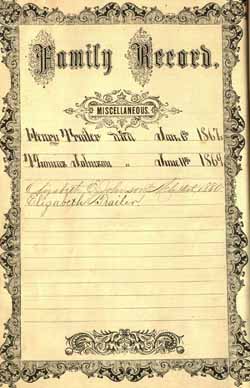 Family Record.
MISCELLANEOUS.
Henry Trailer died Jan. 6th 1867.
Thomas Johnson " June 11th 1869
Elizabeth Johnson 1880
Elizabeth Trailer